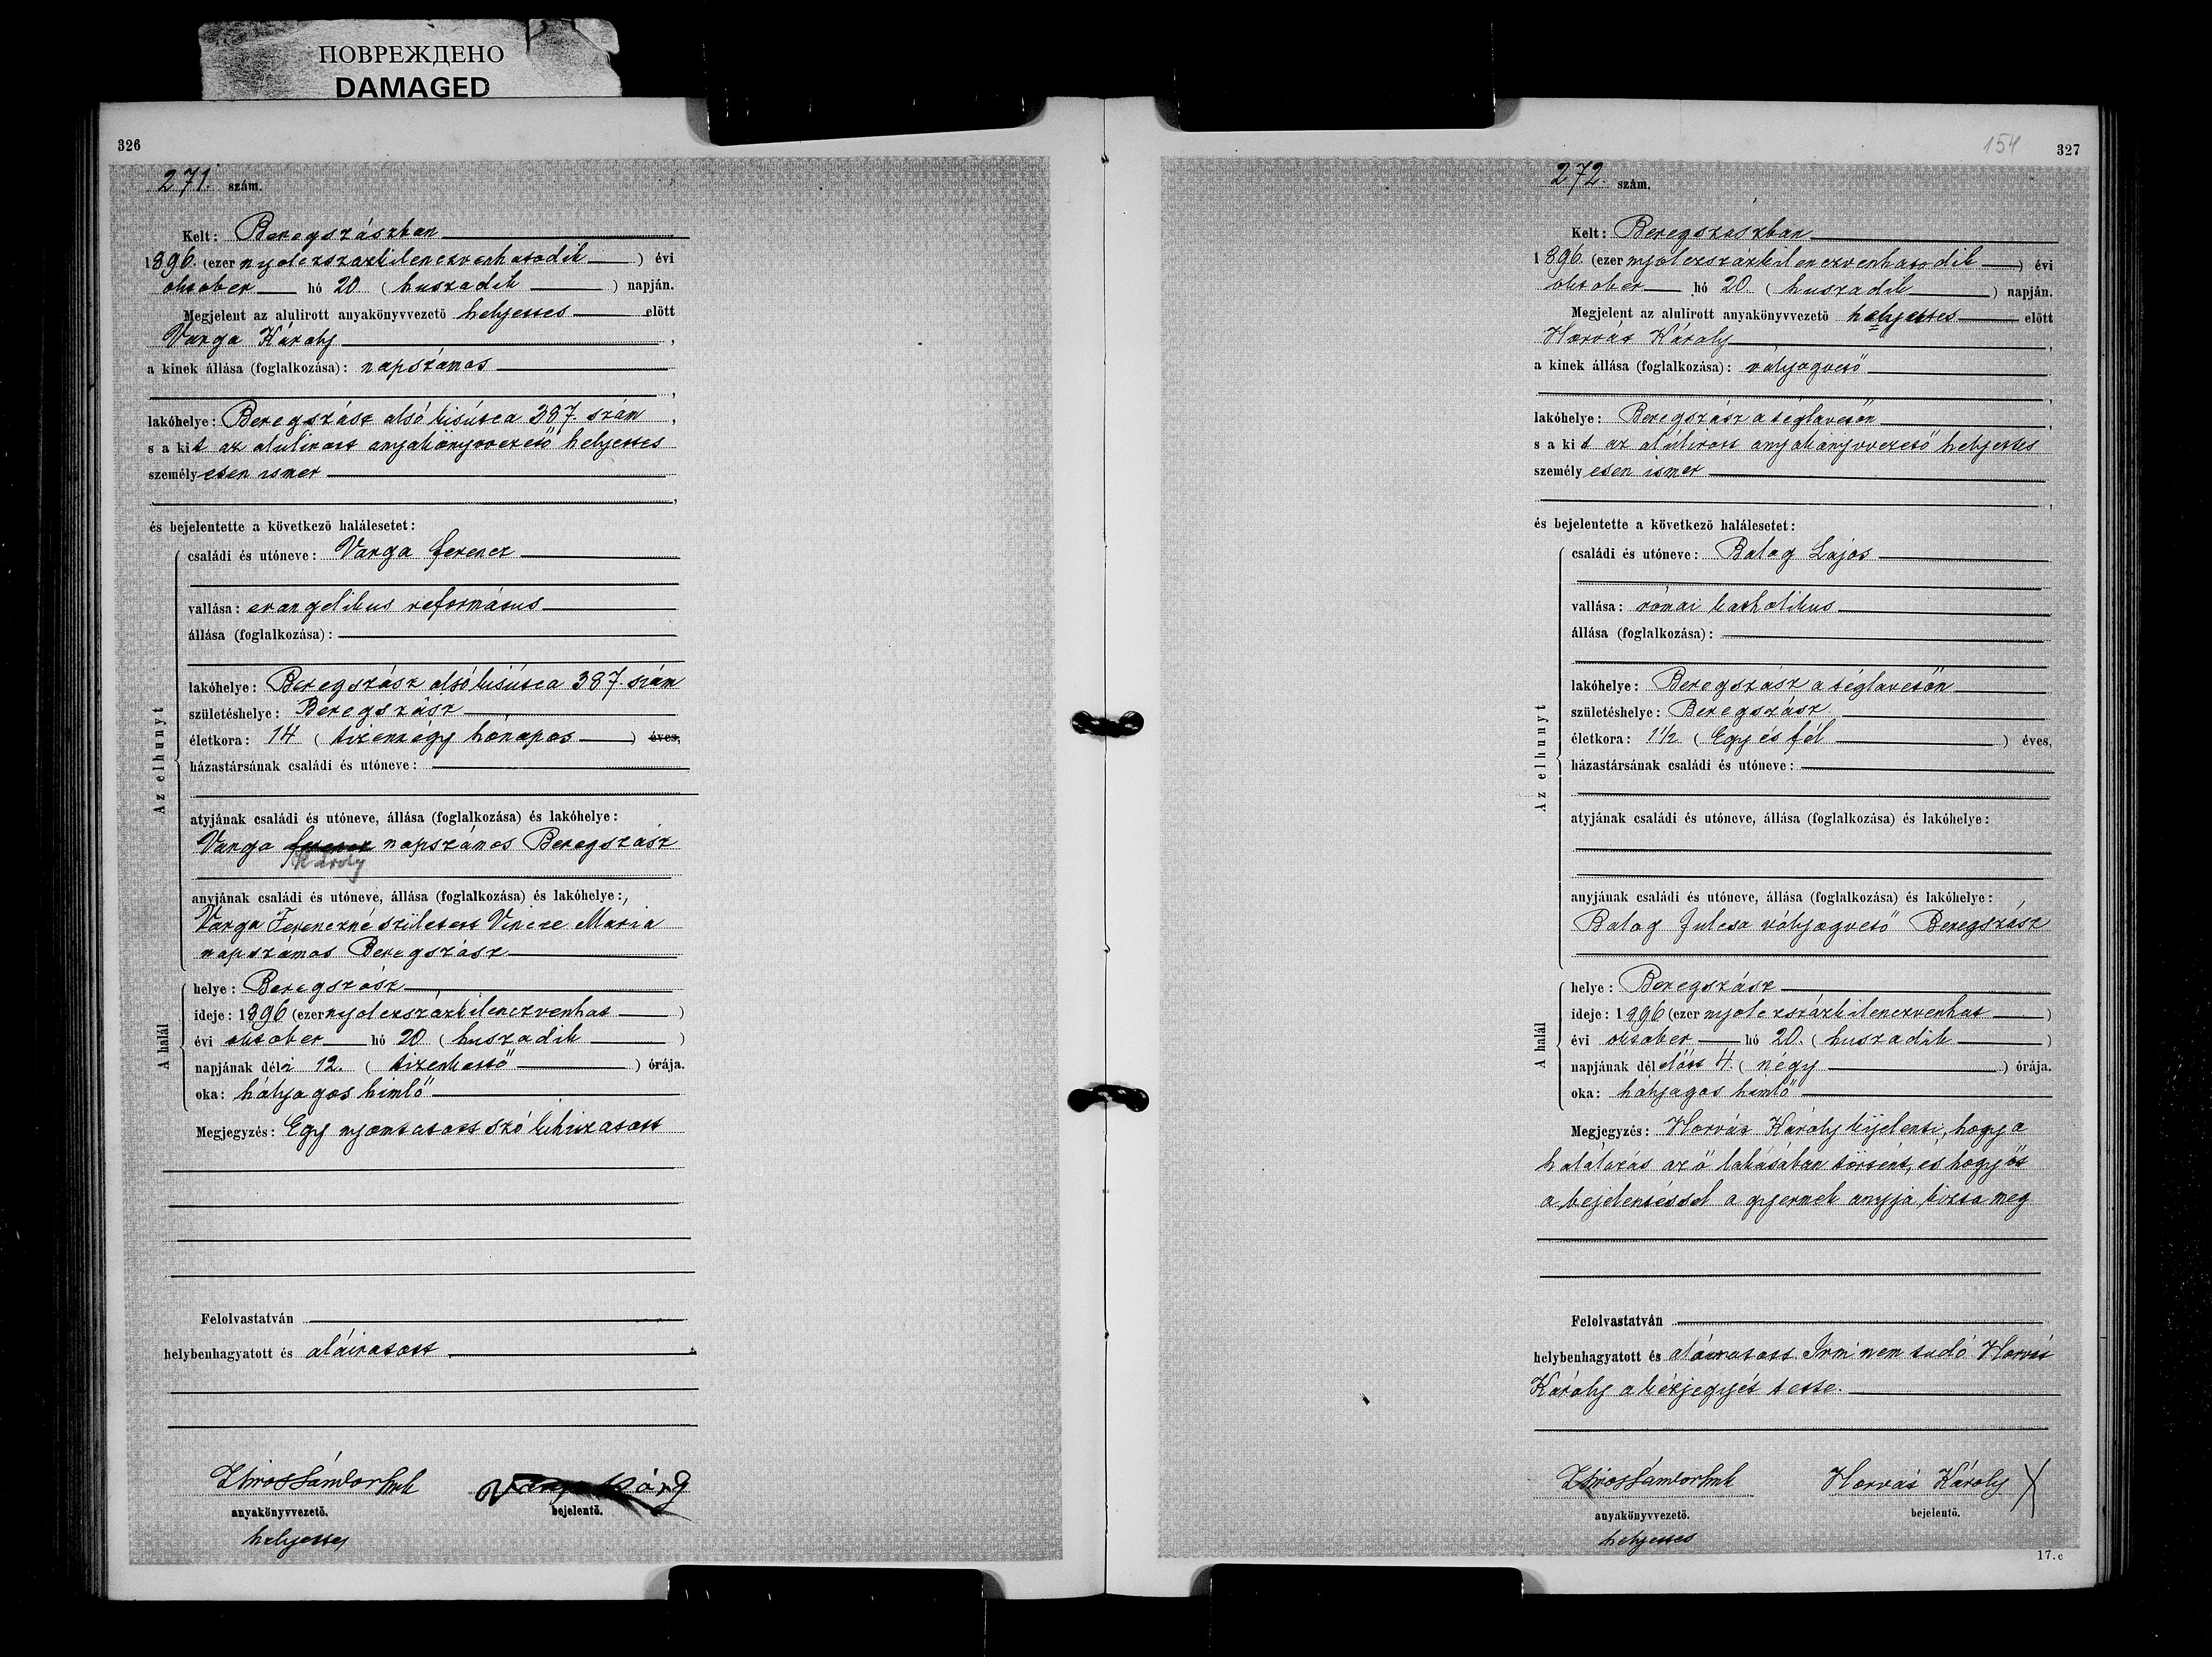 ПОВРЕЖДЕНО
DAMAGED
326
271. szám.
Kelt: Beregszászban
1896. (ezer nyolczszázkilenczvenhatodik) évi
október hó 20 (huszadik) napján.
Megjelent az alulirott anyakönyvvezető helyettes előtt
Varga Károly,
a kinek állása (foglalkozása): napszámos
,
lakóhelye: Beregszász alsó kisútca 387. szám,
s a kit az alulirott anyakönyvvezető helyettes
személyesen ismer
,
és bejelentette a következő halálesetet:
Az elhunyt
családi és utóneve: Varga Ferencz
vallása: evangelikus református
állása (foglalkozása):
lakóhelye: Beregszász alsó kisútca 387. szám
születéshelye: Beregszász
életkora: 14 (tizennégy hónapos) éves,
házastársának családi és utóneve:
atyjának családi és utóneve, állása (foglalkozása) és lakóhelye:
Varga Ferencz napszámos Beregszász
Károly
anyjának családi és utóneve, állása (foglalkozása) és lakóhelye:,
Varga Ferenczné született Vincze Mária
napszámos Beregszász
A halál
helye: Beregszász
ideje: 1896 (ezer nyolczszázkilenczvenhat)
évi október hó 20 (huszadik)
napjának déli 12. (tizenkettő) órája.
oka: hólyagos himlő
Megjegyzés: Egy nyomtatott szó kihúzatott
Felolvastatván
helybenhagyatott és aláiratott
anyakönyvvezető.
helyettes
Varga Károly
bejelentő.
154
327
272. szám.
Kelt: Beregszászban
1896. (ezer nyolczszázkilenczvenhatodik) évi
október hó 20. (huszadik) napján.
Megjelent az alulirott anyakönyvvezető helyettes előtt
Horvát Károly,
a kinek állása (foglalkozása): vályogvető
,
lakóhelye: Beregszász a téglavetőn,
s a kit az alúlirott anyakönyvvezető helyettes
személyesen ismer
,
és bejelentette a következő halálesetet:
Az elhunyt
családi és utóneve: Balog Lajos
vallása: római katholikus
állása (foglalkozása):
lakóhelye: Beregszász a téglavetőn
születéshelye: Beregszász
életkora: 1 1/2 (Egy és fél) éves,
házastársának családi és utóneve:
atyjának családi és utóneve, állása (foglalkozása) és lakóhelye:
anyjának családi és utóneve, állása (foglalkozása) és lakóhelye:
Balog Julcsa vályogvető Beregszász
A halál
helye: Beregszász
ideje: 1896 (ezer nyolczszázkilenczvenhat)
évi október hó 20. (huszadik)
napjának délelőtt 4. (négy) órája.
oka: hólyagos himlő
Megjegyzés: Horvát Károly kijelenti, hogy a
halálozás az ő lakásában történt, és hogy őt
a bejelentéssel a gyermek anyja bizta meg
Felolvastatván
helybenhagyatott és aláiratott. Irni nem tudó Horvát
Károly a kézjegyét tette.
anyakönyvvezető.
helyettes
Horvát Károly X
bejelentő.
17.c